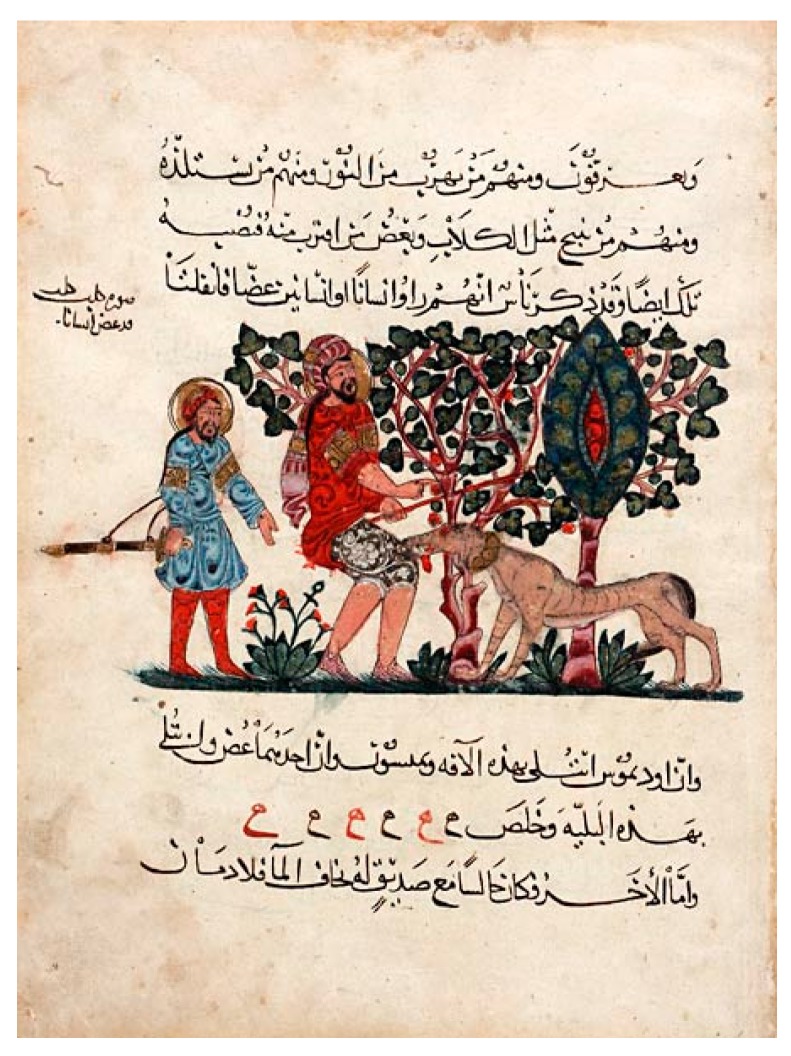 ويعرقون ومنهم من يهرب من النور ومنهم من يستلذه
ومنهم من ينبح مثل الكلاب وبعض من اقترب منه فيصيبه
تلك ايضا وقد ذكر ناس انهم راوا انسانا او انسانين عضا فانفلتا
صورة كلب كلب
قد عض انسانا
وان اوديموس ابتلى بهذه الآفة وان احدهما عض وابتلي
بهذه البلية وخلص ه ه ه ه ه ه
واما الآخر فكان جالسا مع صديق له يخاف الما فلا